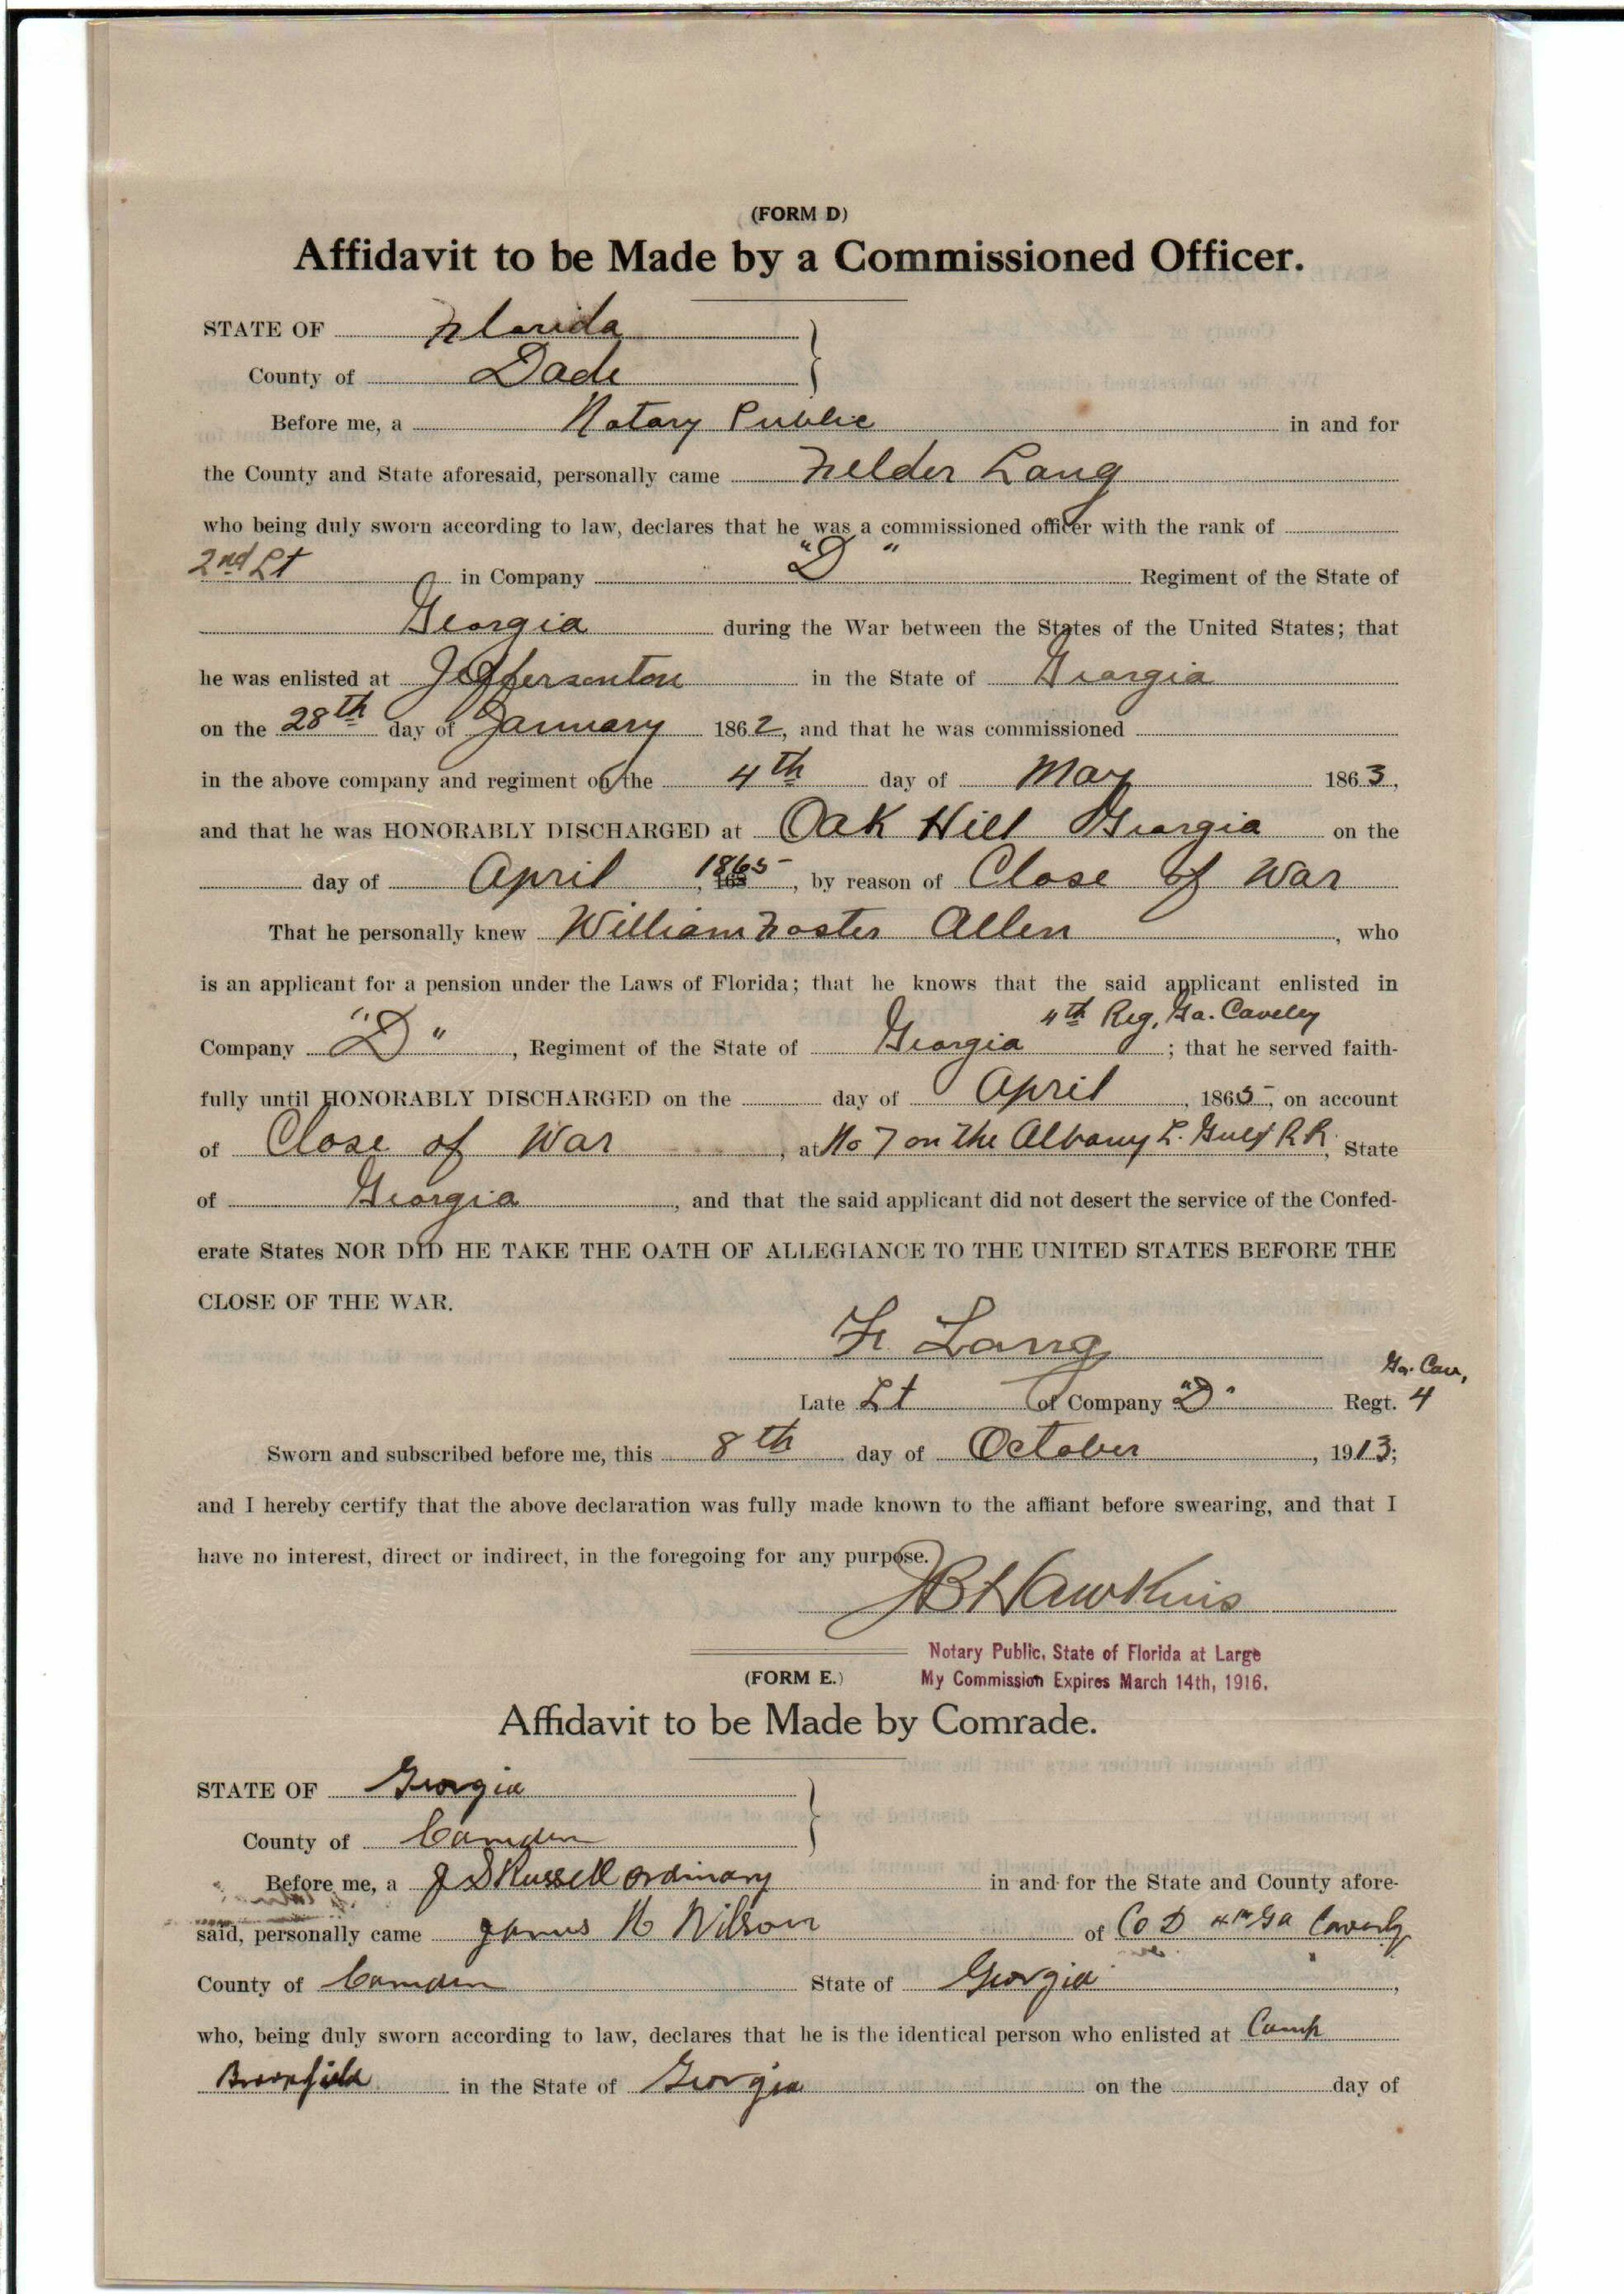 (FORM D)
Affidavit to be Made by a Commissioned Officer.
STATE OF Florida
County of Dade
Before me, a Notary Public in and for
the County and State aforesaid, personally came Fielder Lang
who being duly sworn according to law, declares that he was a commissioned officer with the rank of
2nd Lt in Company "D" Regiment of the State of
Georgia during the War between the States of the United States; that
he was enlisted at Jeffersonton in the State of Georgia
on the 28th day of January 1862, and that he was commissioned
in the above company and regiment on the 4th day of May 1863,
and that he was HONORABLY DISCHARGED at Oak Hill Georgia on the
day of April, 1865, by reason of Close of War
That he personally knew William Foster Allen, who
is an applicant for a pension under the Laws of Florida; that he knows that the said applicant enlisted in
4th Reg, Ga. Cavely
Company "D", Regiment of the State of Georgia; that he served faith-
fully until HONORABLY DISCHARGED on the day of April, 1865, on account
of Close of War, at No 7 on The Albany & Gulf R R, State
of Georgia, and that the said applicant did not desert the service of the Confed-
erate States NOR DID HE TAKE THE OATH OF ALLEGIANCE TO THE UNITED STATES BEFORE THE
CLOSE OF THE WAR.
F. Lang
Ga. Cav,
Late Lt of Company "D" Regt. 4
Sworn and subscribed before me, this 8th day of October, 1913;
and I hereby certify that the above declaration was fully made known to the affiant before swearing, and that I
have no interest, direct or indirect, in the foregoing for any purpose.
JB Hawkins
Notary Public, State of Florida at Large
My Commission Expires March 14th, 1916.
(FORM E.)
Affidavit to be Made by Comrade.
STATE OF Georgia
County of Camden
Before me, a J S Russell ordinary in and for the State and County afore-
said, personally came James H Wilson of Co D 4th Ga Caverly
County of Camden State of Georgia,
who, being duly sworn according to law, declares that he is the identical person who enlisted at Camp
in the State of Georgia on the day of